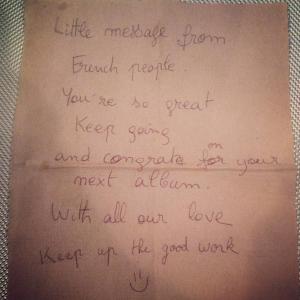 Little message from
French people.
You're so great
Keep going
and congrats for on your
next album.
With all our love
Keep up the good work